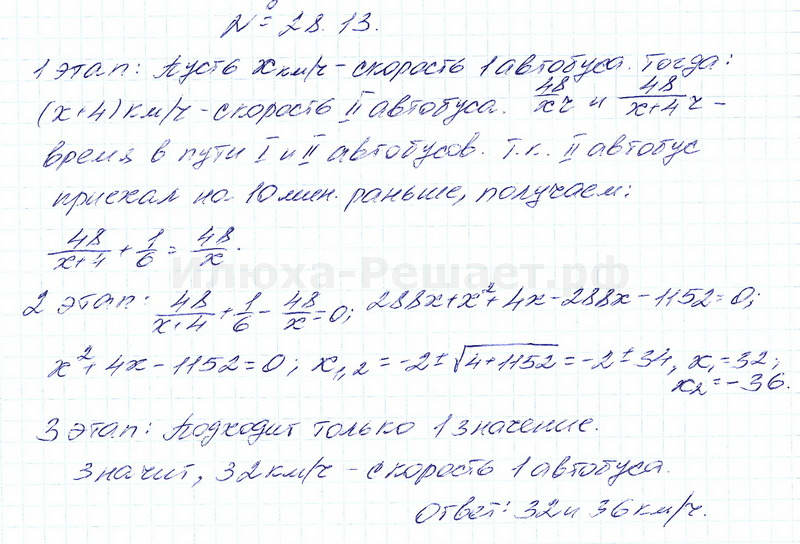 № 28.13.
1 этап: Пусть x км/ч - скорость 1 автобуса. Тогда:
(x+4) км/ч - скорость II автобуса. 48/x ч и 48/x+4 ч -
время в пути I и II автобусов. Т.к. II автобус
приехал на 10 мин. раньше, получаем:
48/x+4 + 1/6 = 48/x.
Илюха-Решает.рф
2 этап: 48/x+4 + 1/6 - 48/x = 0; 288x+x²+4x-288x-1152=0;
x²+4x-1152=0; x₁,₂ = -2±√4+1152 = -2±34, x₁=32;
x₂=-36.
3 этап: Подходит только 1 значение.
Значит, 32 км/ч - скорость 1 автобуса.
Ответ: 32 и 36 км/ч.